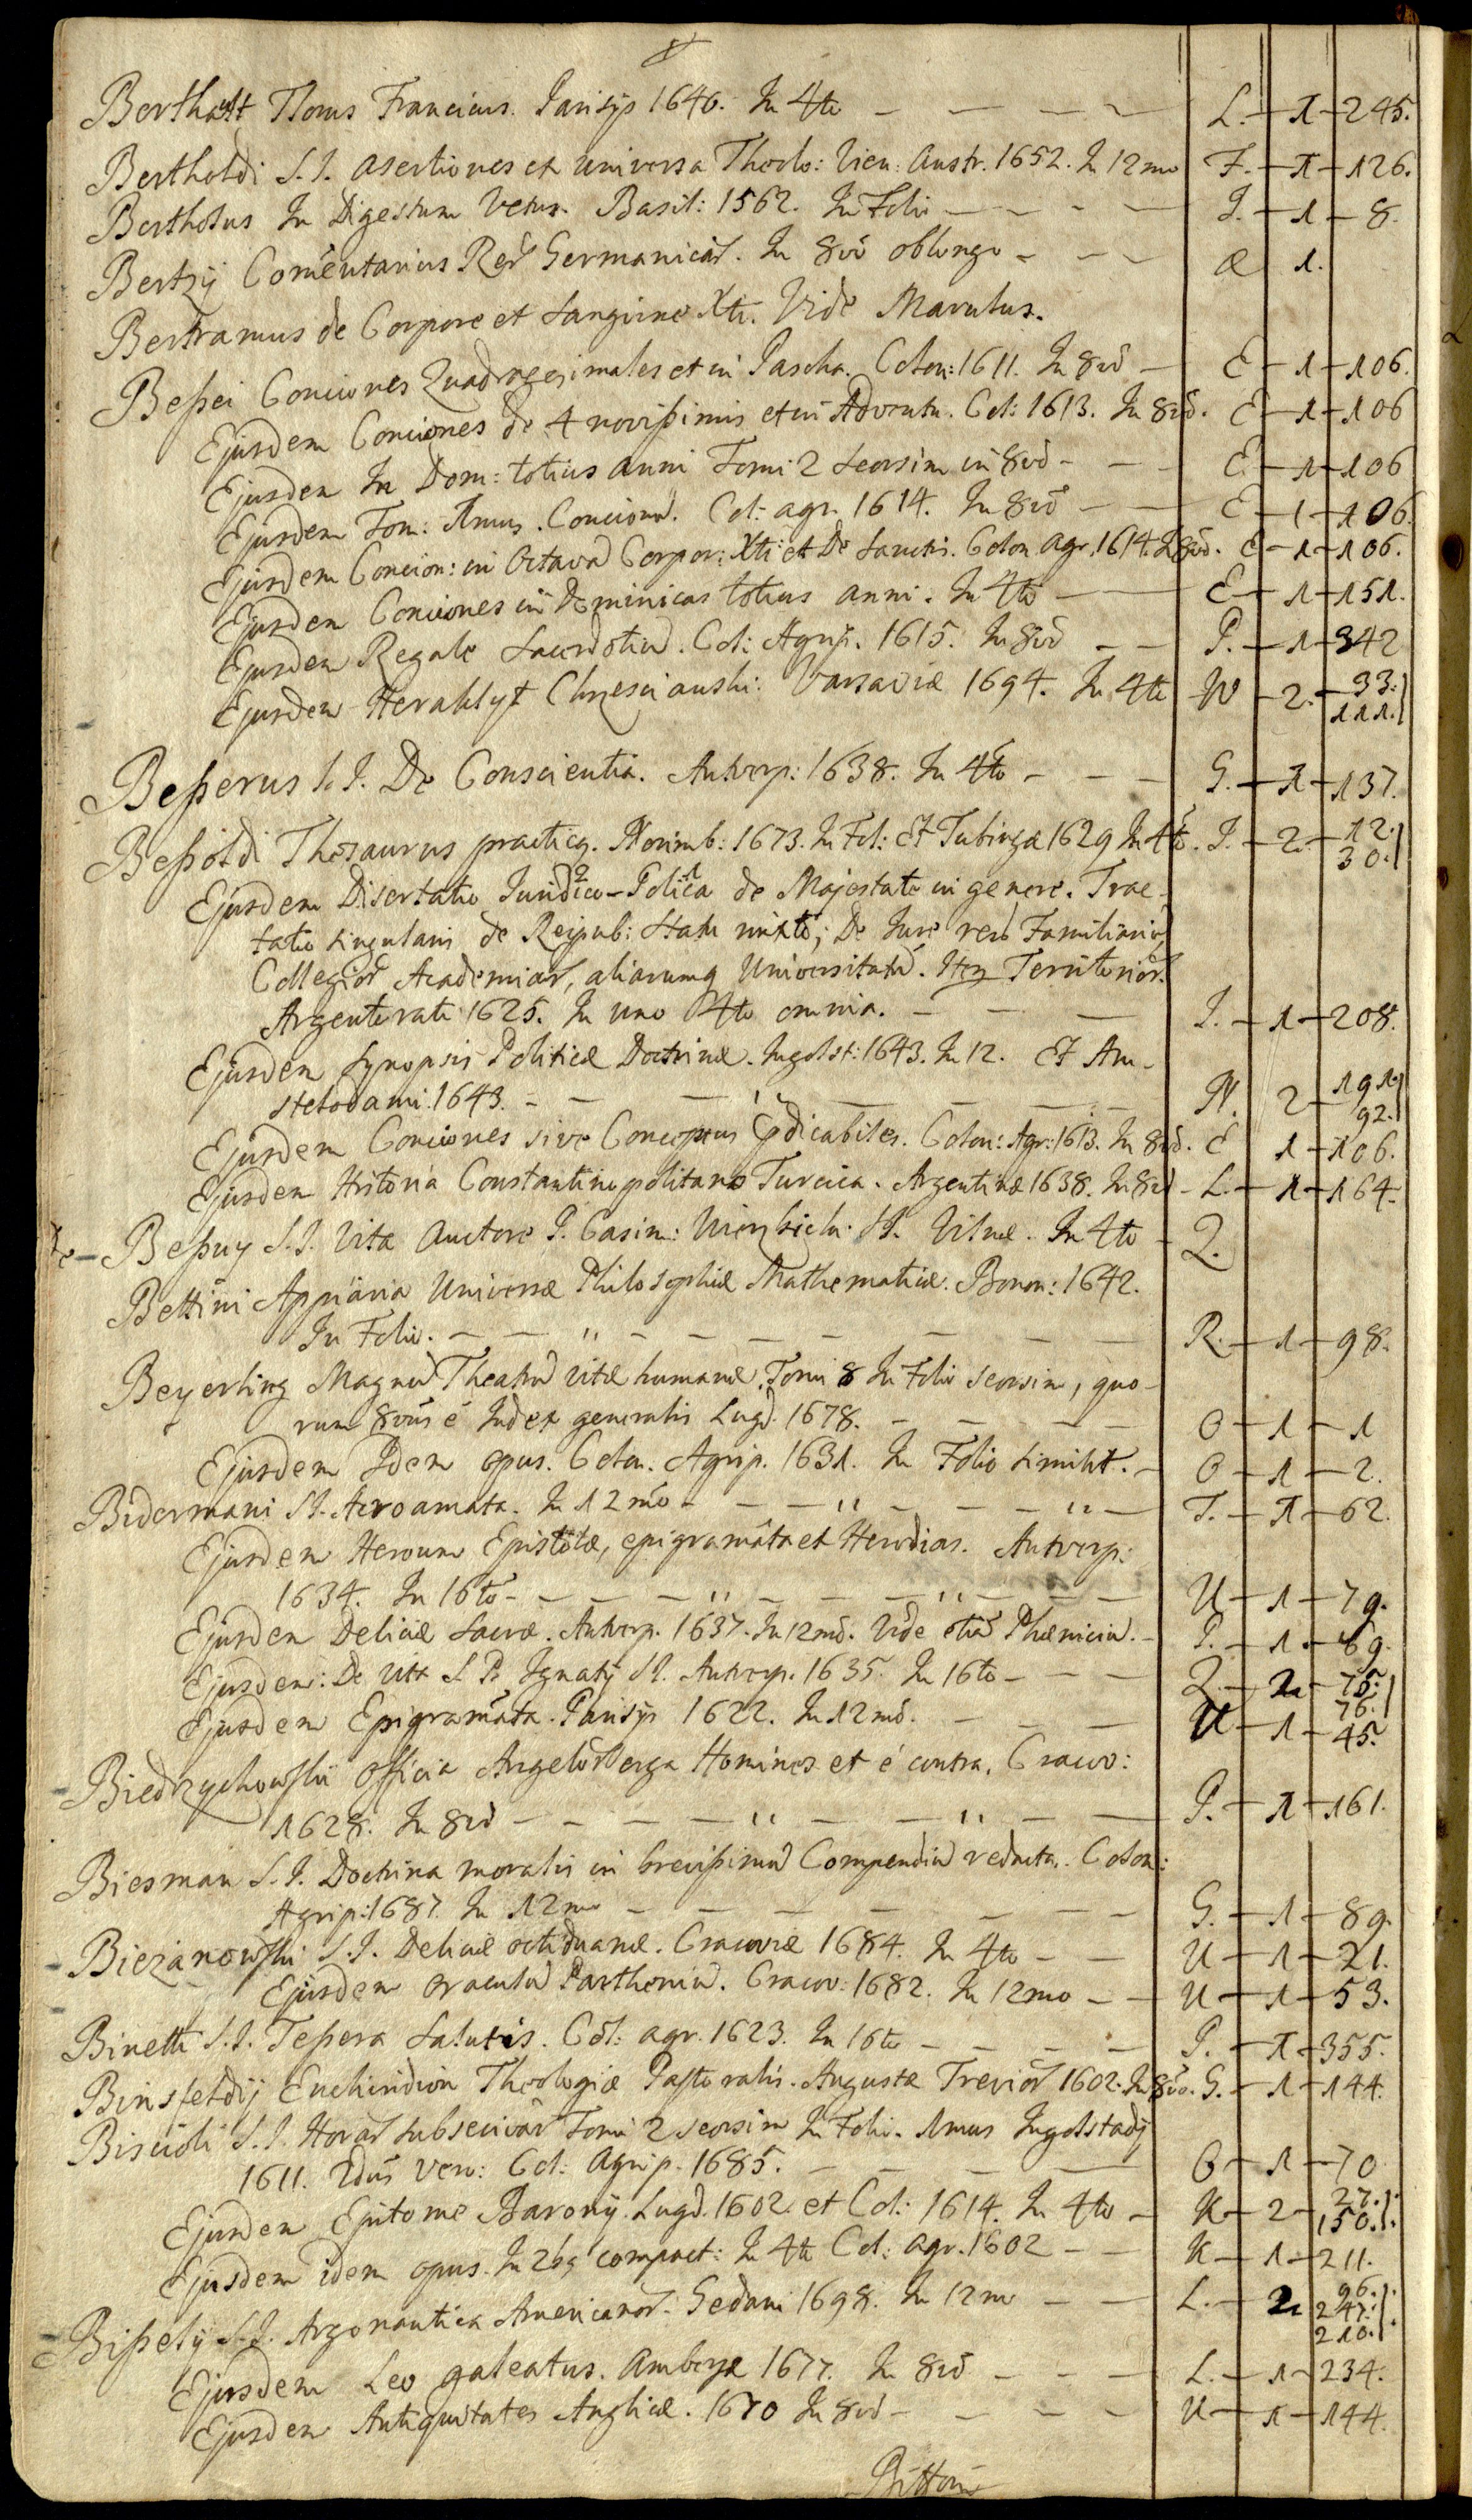 Berthault Florus Francicus. Parisijs 1646. In 4to — — — — L. — 1 — 245.
Bertholdi S. I. Asertiones ex universa Theolo: Vien: Austr. 1652. In 12mo F. — 1 — 126.
Bertholus In Digestum Vetus. Basil: 1562. In Folio — — — — I. — 1 — 8.
Bertzij Comentarius Rerū Germanicar̄. In 8vō oblongo — — — Æ 1.
Bertramus de Corpore et Sanguine Xti. Vide Marulus.
Beßei Conciones Quadragesimales et in Pascha. Colon: 1611. In 8vō — E — 1 — 106.
Ejusdem Conciones de 4 novißimis et in Adventu. Col: 1613. In 8vō. E — 1 — 106
Ejusdem In Dom: totius anni Tomi 2 seorsim in 8vō — — — E — 1 — 106
Ejusdem Tom: 1mus. Concionū. Col: agr. 1614. In 8vō — — E — 1 — 106.
Ejusdem Concion: in Octava Corpor: Xti et De Sanctis. Colon. agr. 1614. In 8vō. E — 1 — 106.
Ejusdem Conciones in Dominicas totius anni. In 4to — — E — 1 — 151.
Ejusdem Regale Sacerdotiū. Col: Agrip. 1615. In 8vō — — P. — 1 — 342
Ejusdem Heraklyt Chrzescianski. Varsaviæ 1694. In 4to W — 2. — 33. 111.}
Beßerus S. I. De Conscientia. Antverp: 1638. In 4to — — — G. — 1 — 137.
Beßoldi Thesaurus practicq. Norimb: 1673. In Fol: Et Tubingæ 1629 In 4to. I. — 2. — 12. 30.}
Ejusdem Disertatio Juridico-Politica de Majestate in genere. Trac-
tatio singularis de Reipub: statu mixto; De Jure rerū Familiariū,
Collegior̄ Academiar̄, aliarumq Universitatū. Itez Territorior̄.
Argentorati 1625. In uno 4to omnia. — — — I. — 1 — 208.
Ejusdem Synopsis Politicæ Doctrinæ. Ingolst: 1643. In 12. Et Am-
stelodami. 1643. — — — — — — N. 2 — 191. 92.}
Ejusdem Conciones sive Conceptus Prædicabiles. Colon: Agr: 1613. In 8vō. E 1 — 106.
Ejusdem Historia Constantinopolitano Turcica. Argentinæ 1638. In 8vō — L. — 1 — 164.
Beßuy S. I. Vita Auctore P. Casim: S I. Vilnæ. In 4to — Q.
Bettini Appiaria Universæ Philosophiæ Mathematicæ. Bonon: 1642.
In Folio. — — " — — — — — — R. — 1 — 98.
Beyerling Magnū Theatrū Vitæ humanæ. Tomi 8 In Folio seorsim, quo-
rum 8vūs é Index generalis Lugd. 1678. — — — — O — 1 — 1
Ejusdem Idem opus. Colon. Agrip. 1631. In Folio similit. — O — 1 — 2.
Bidermani S I. Acroamata. In 12mo — — — " — — — " — T. — 1 — 62.
Ejusdem Heroum Epistolæ, epigramata et Herodias. Antverp:
1634. In 16to — — — — " — — — " — — — U — 1 — 79.
Ejusdem Deliciæ Sacræ. Antverp. 1637. In 12mō. Vide etiā Phænicia. — P. — 1. — 69.
Ejusdem: De vita S. P. Ignatij S I. Antverp. 1635. In 16to — — — Q. — 2 — 75. 76.}
Ejusdem Epigramata. Parisijs 1622. In 12mō. — — — U — 1 — 45.
Biedrzychowski Officia Angelor̄ erga Homines et é contra. Cracov:
1628. In 8vō — — — — " — — " — — P. — 1 — 161.
Biesman S. I. Doctrina moralis in brevißimū Compendiū redacta. Colon:
Agrip: 1687. In 12mo — — — — — — — G. — 1 — 89.
Biezanowski S. I. Deliciæ octiduanæ. Cracoviæ 1684. In 4to — — U — 1 — 21.
Ejusdem Oraculū Partheniū. Cracov: 1682. In 12mo — — U — 1 — 53.
Binetti S. I. Teßera Salutis. Col: agr. 1623. In 16to — — — — P. — 1 — 355.
Binsfeldij Enchiridion Theologiæ Pastoralis. Augustæ Trevior̄ 1602. In 8vo. G. — 1 — 144.
Biscioli S. I. Horar̄ subsecivar̄ Tomi 2 seorsim In Folio. 1mus Ingolstadij
1611. 2dūs vero: Col: Agrip. 1685. — — — — O — 1 — 70
Ejusdem Epitome Baronij. Lugd. 1602. et Col: 1614. In 4to — K — 2 — 27. 150.}.
Ejusdem idem opus. In 2bq compact: In 4to Col: agr. 1602 — — K — 1 — 211.
Bißelij S. I. Argonautica Americanor̄. Gedani 1698. In 12mo — — L. — 2 96. 247. 210.}
Ejusdem Leo galeatus. Ambergæ 1677. In 8vō — — — L. — 1 — 234.
Ejusdem Antiquitates Angliæ. 1670 In 8vō — — — — U — 1 — 144.